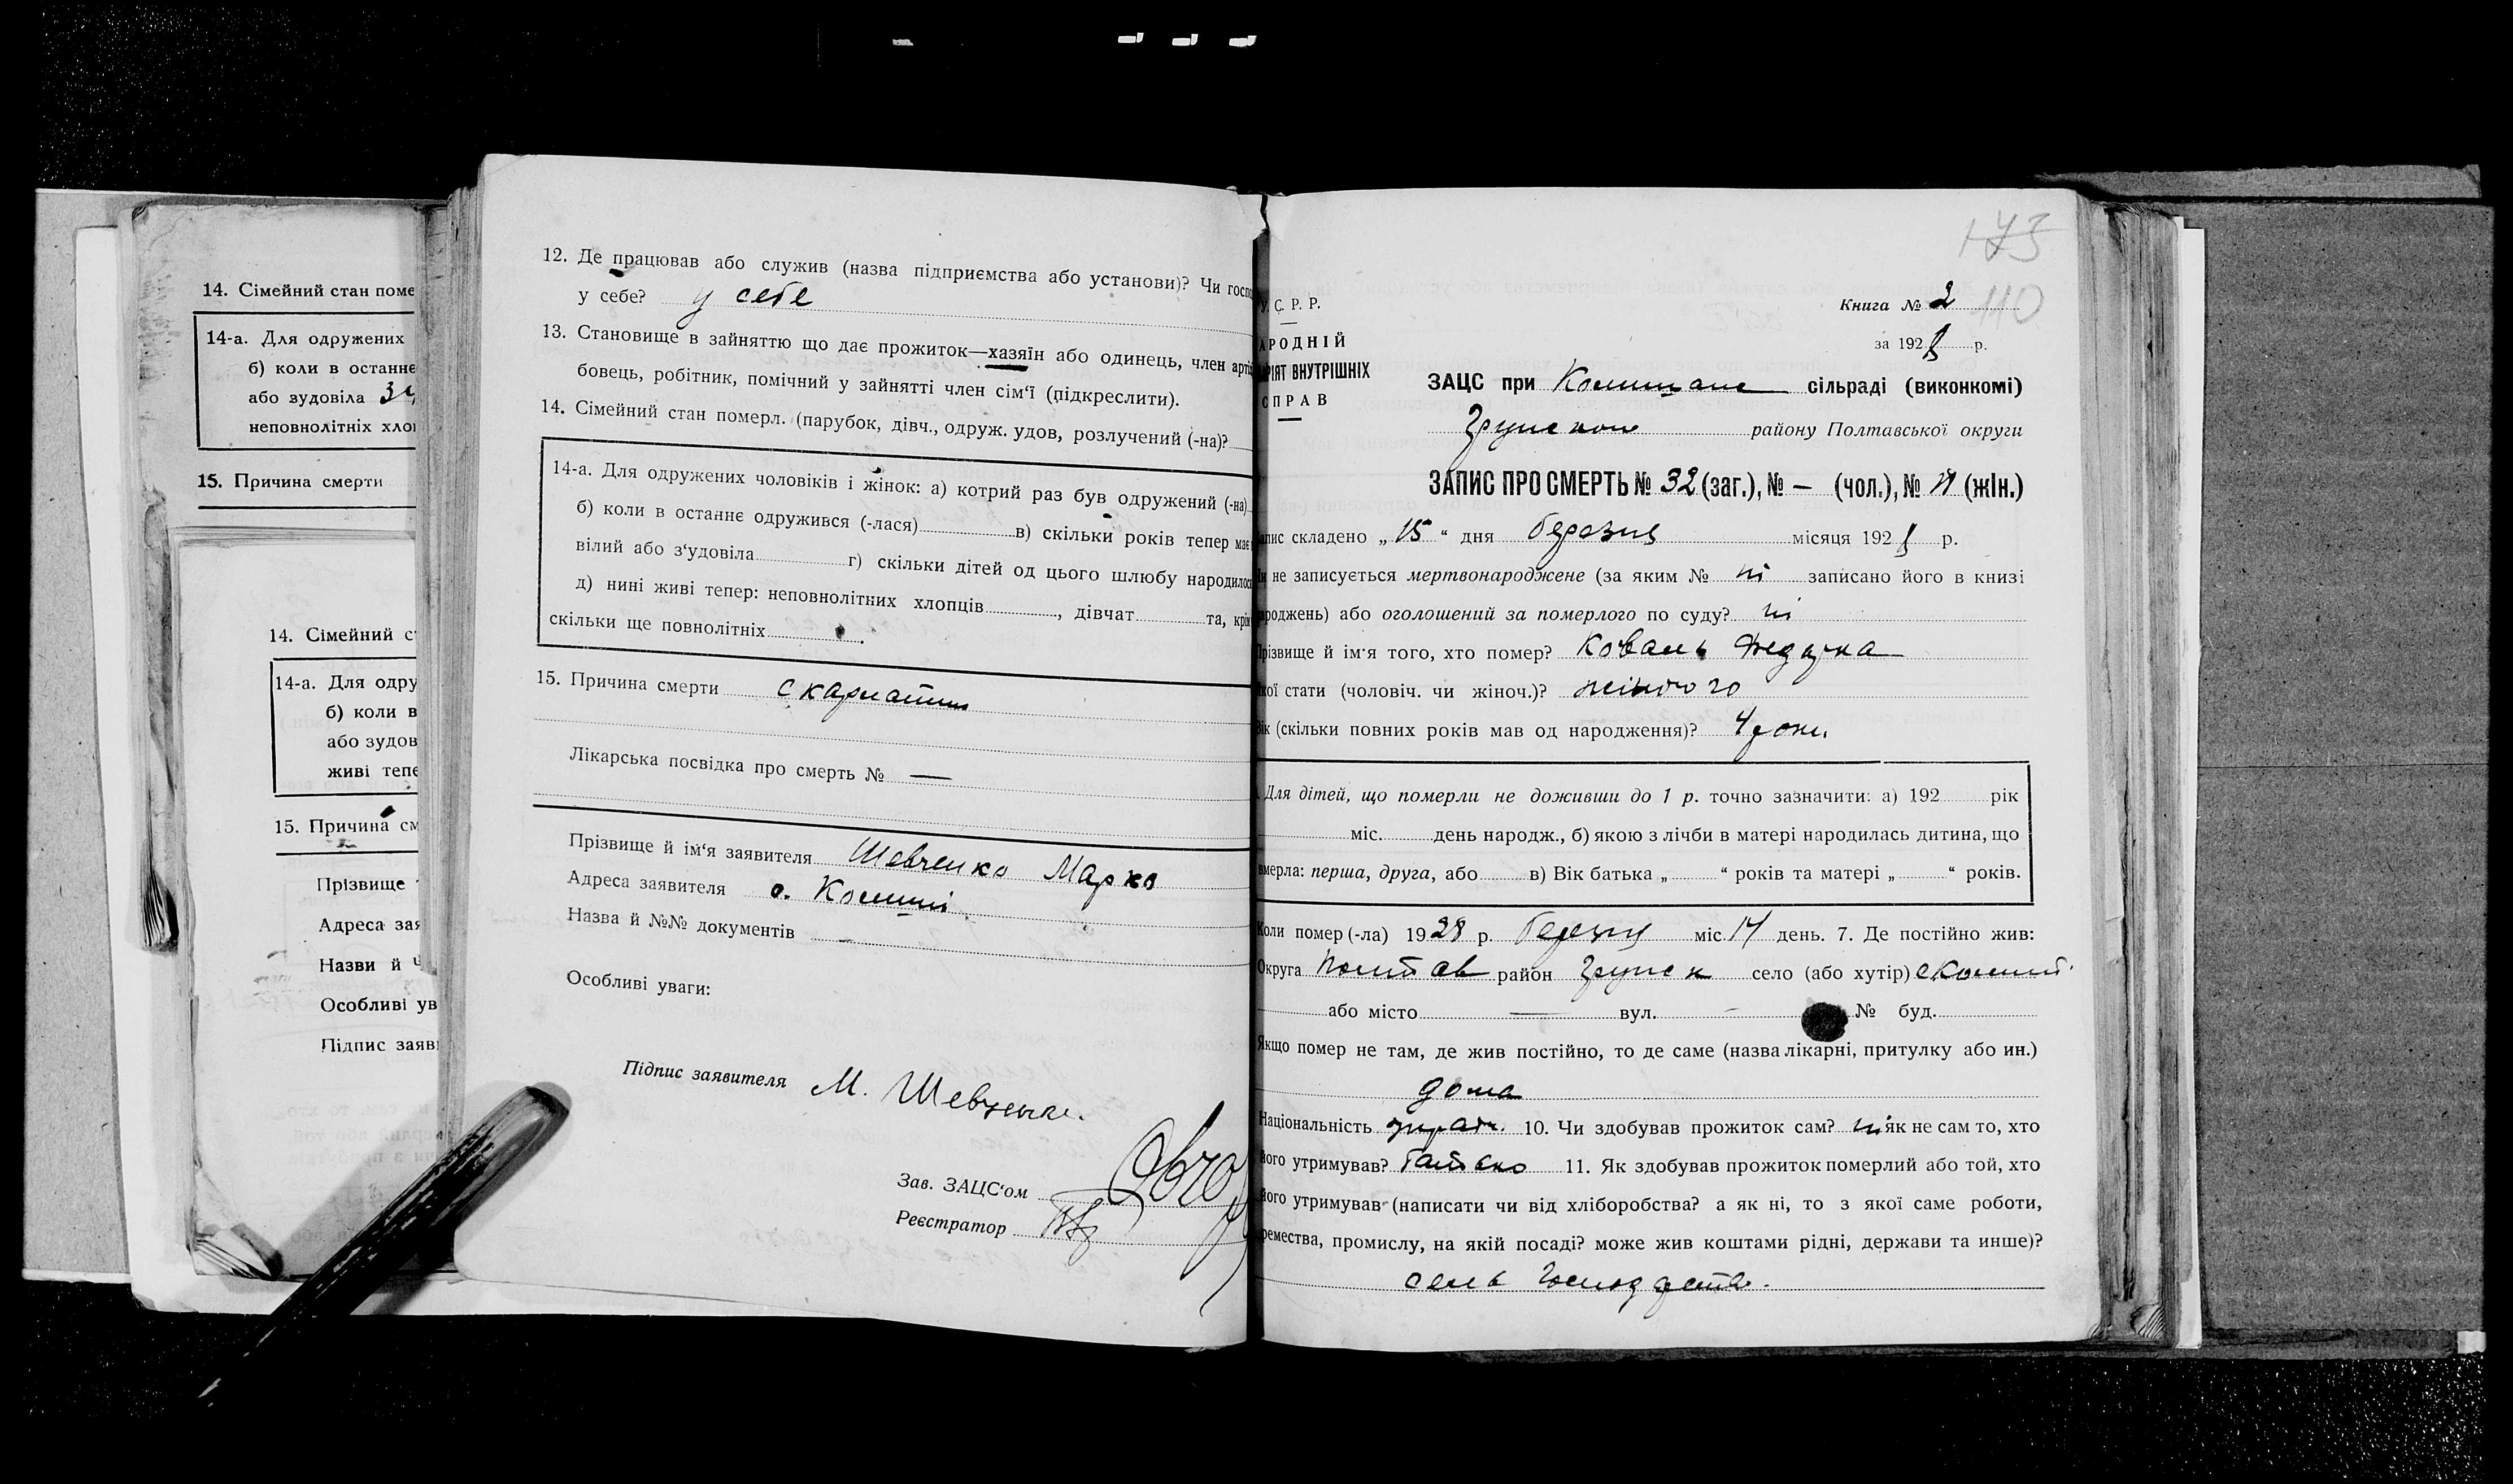 14. Сімейний стан поме
14-а. Для одружених
б) коли в останнє
або зудовіла
неповнолітніх хло
15. Причина смерти
14. Сімейний с
14-а. Для одру
б) коли в
або зудов
живі тепе
15. Причина см
Прізвище
Адреса зая
Назви й
Особливі ув
Підпис заяв
12. Де працював або служив (назва підприємства або установи)? Чи госпо
у себе? у себе
13. Становище в зайняттю що дає прожиток—хазяїн або одинець, член арті
бовець, робітник, помічний у зайнятті член сім'ї (підкреслити).
14. Сімейний стан померл. (парубок, дівч., одруж. удов, розлучений (-на)?
14-а. Для одружених чоловіків і жінок: а) котрий раз був одружений (-на)
б) коли в останнє одружився (-лася) в) скільки років тепер має
вілий або з'удовіла г) скільки дітей од цього шлюбу народилося
д) нині живі тепер: неповнолітних хлопців , дівчат та, крім
скільки ще повнолітніх .
15. Причина смерти скарлатина
Лікарська посвідка про смерть № —
Прізвище й ім'я заявителя Шевченко Марко
Адреса заявителя с.
Назва й №№ документів —
Особливі уваги:
Підпис заявителя М. Шевченко.
Зав. ЗАЦС'ом
Реєстратор
173
Книга № 2 110
У. С. Р. Р.
за 1928 р.
АРОДНІЙ
РІЯТ ВНУТРІШНІХ
СПРАВ
ЗАЦС при сільраді (виконкомі)
району Полтавської округи
ЗАПИС ПРО СМЕРТЬ № 32 (заг.), № — (чол.), № (жін.)
апис складено „15“ дня березня місяця 1928 р.
и не записується мертвонароджене (за яким № ні записано його в книзі
ароджень) або оголошений за померлого по суду? ні
Прізвище й ім'я того, хто помер? Коваль
кої стати (чоловіч. чи жіноч.)? жіночого
Вік (скільки повних років мав од народження)? 4 роки.
Для дітей, що померли не доживши до 1 р. точно зазначити: а) 192 рік
міс. день народж., б) якою з лічби в матері народилась дитина, що
вмерла: перша, друга, або в) Вік батька „ “ років та матері „ “ років.
Коли помер (-ла) 1928 р. березня міс 14 день. 7. Де постійно жив:
Округа Полтав район село (або хутір)
або місто — вул. — № буд.
Якщо помер не там, де жив постійно, то де саме (назва лікарні, притулку або ин.)
дома
Національність україн. 10. Чи здобував прожиток сам? ні як не сам то, хто
його утримував? батько 11. Як здобував прожиток померлий або той, хто
його утримував (написати чи від хліборобства? а як ні, то з якої саме роботи,
ремества, промислу, на якій посаді? може жив коштами рідні, держави та инше)?
сельс